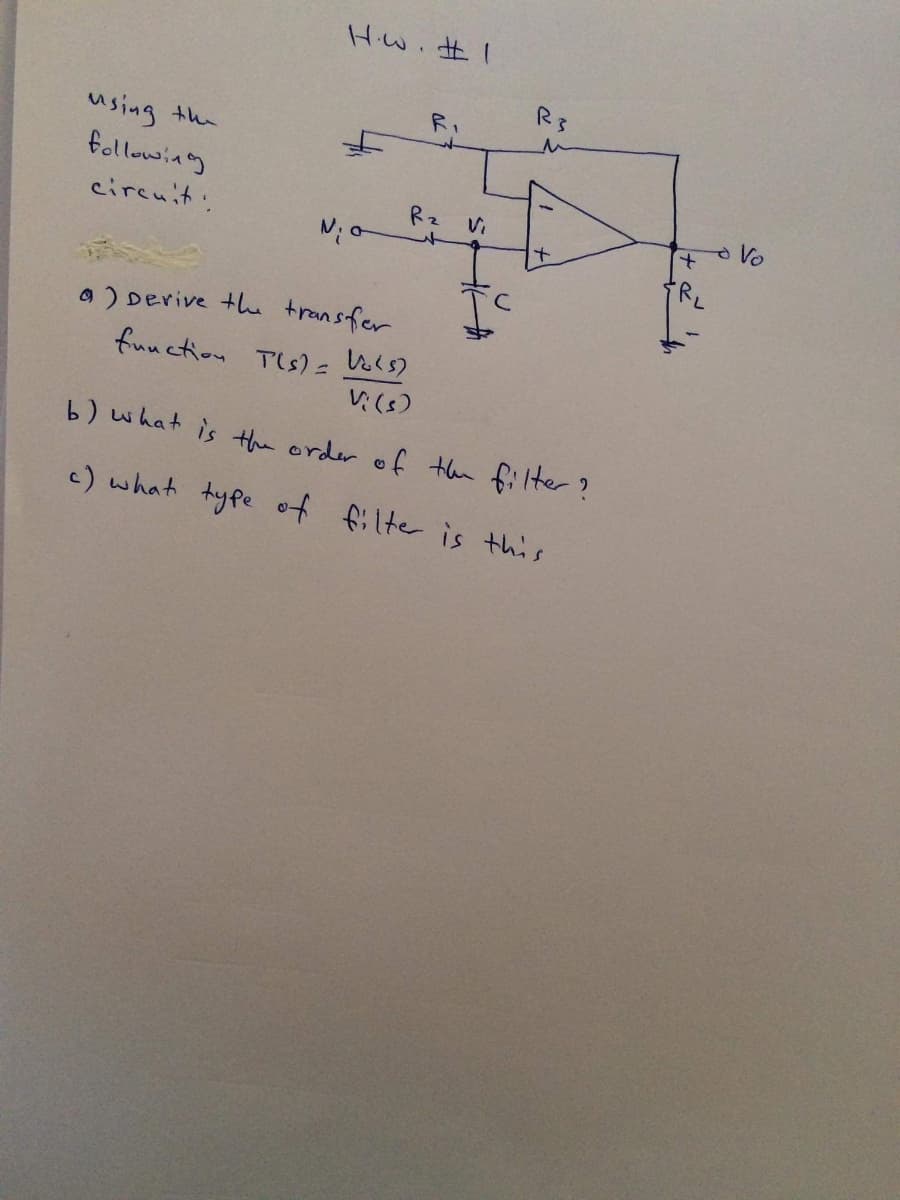 H.W. # 1
using the
following
circuit:
R1 R3
Vi R2 V1 - + Vo
C + RL -
a) Derive the transfer
function T(s) = Vo(s)
Vi(s)
b) what is the order of the filter?
c) what type of filter is this